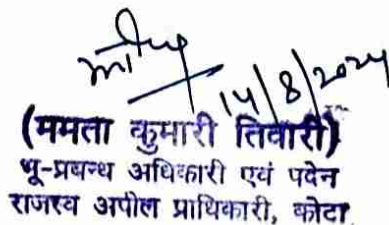 14/8/2024
(ममता कुमारी तिवारी)
भू-प्रबन्ध अधिकारी एवं पदेन
राजस्व अपील प्राधिकारी, कोटा